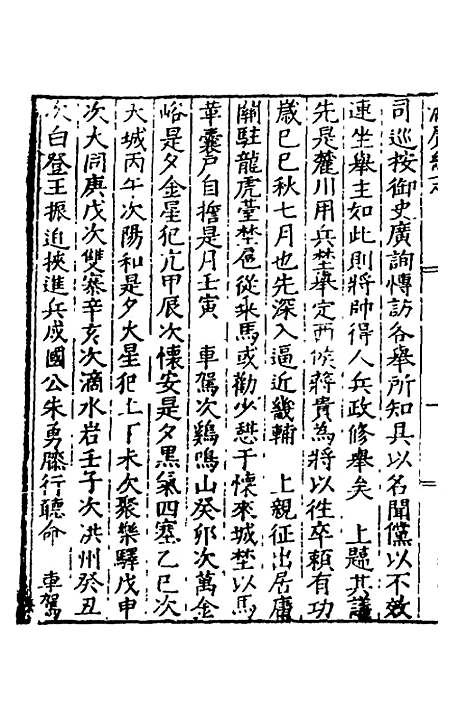 司巡按御史廣詢慱訪各舉所知具以名聞儻以不效
連坐舉主如此則將帥得人兵政修舉矣　上韙其議
先是麓川用兵埜舉定西侯蔣貴為將以往卒頼有功
歲巳巳秋七月也先深入逼近畿輔　上親征出居庸
關駐龍虎臺埜扈從乘馬或勸少憇于懷來城埜以馬
革囊尸自誓是月壬寅　車駕次鷄鳴山癸卯次萬全
峪是夕金星犯亢甲辰次懷安是夕黒氣四塞乙巳次
大城丙午次陽和是夕火星犯土丁未次聚樂驛戊申
次大同庚戊次雙寨辛亥次滴水岩壬子次洪州癸丑
次白登王振迫挾進兵成國公朱勇膝行聽命　車駕